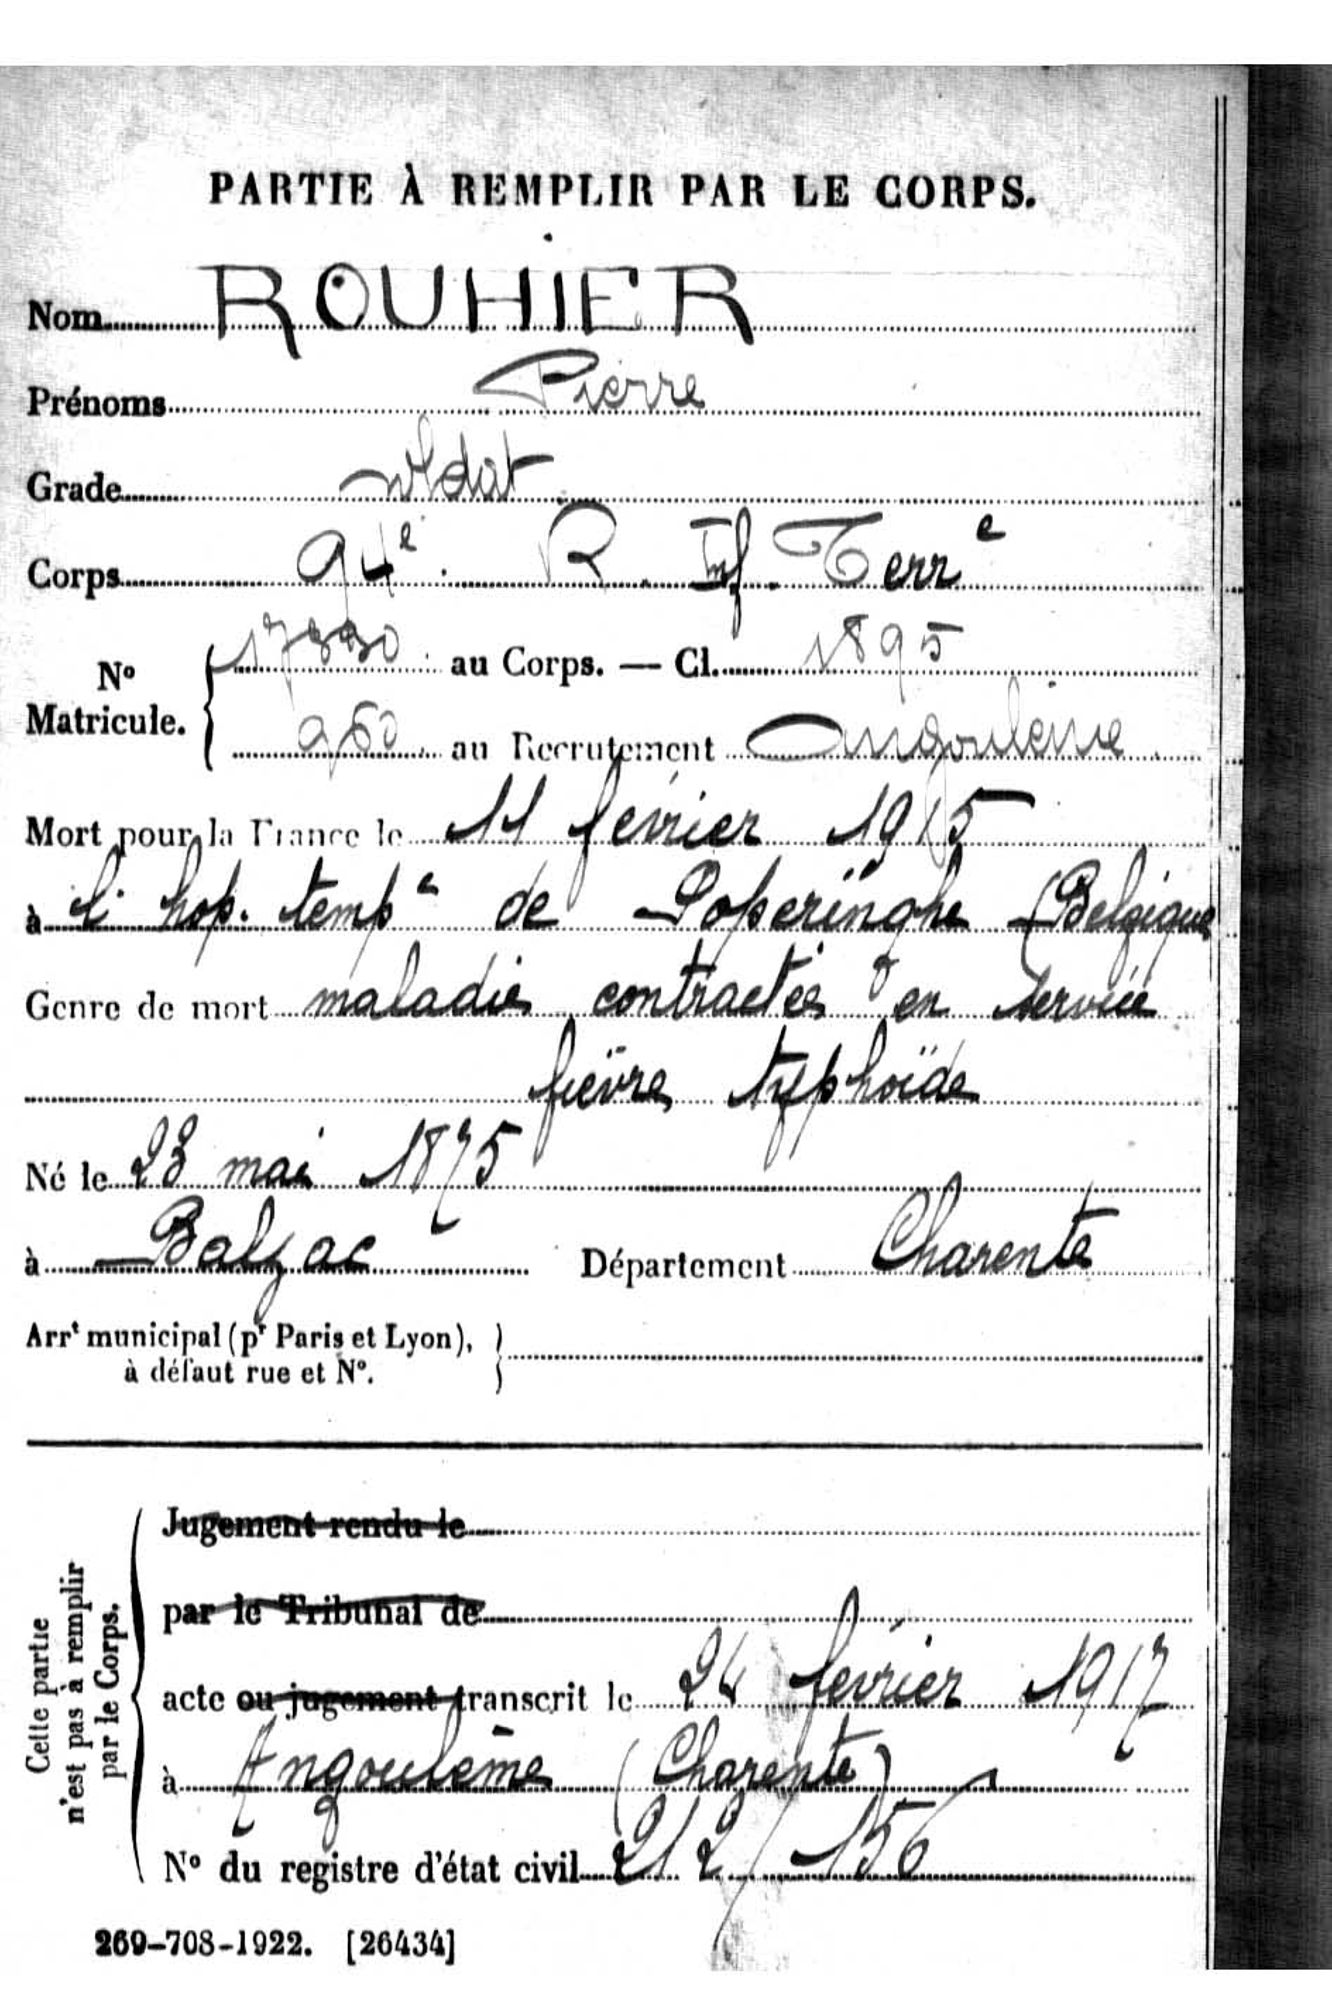 PARTIE À REMPLIR PAR LE CORPS.
Nom ROUHIER
Prénoms Pierre
Grade soldat
Corps 94e R. Inf. Terre
No Matricule. { 17330 au Corps. — Cl. 1895
960 au Recrutement Angoulême
Mort pour la France le 11 février 1915
à l'hop. tempe de Poperinghe (Belgique
Genre de mort maladie contractée en service
fièvre typhoïde
Né le 23 mai 1875
à Balzac Département Charente
Arrt municipal (pr Paris et Lyon), }
à défaut rue et No.
Cette partie n'est pas à remplir par le Corps.
Jugement rendu le
par le Tribunal de
acte ou jugement transcrit le 24 février 1917
à Angoulême (Charente)
No du registre d'état civil 212/156
269-708-1922. [26434]